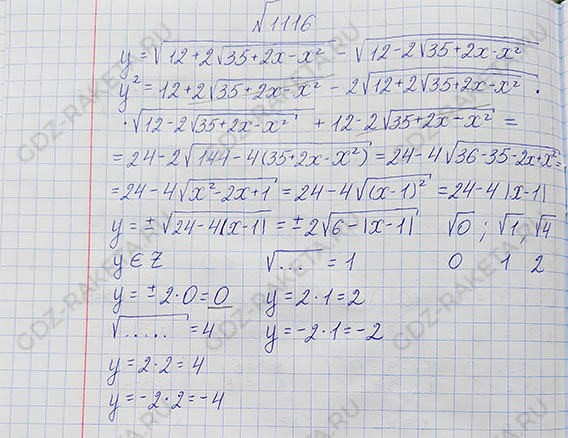 √1116
y = √(12+2√(35+2x-x²)) - √(12-2√(35+2x-x²))
y² = 12+2√(35+2x-x²) - 2√(12+2√(35+2x-x²)) ·
· √(12-2√(35+2x-x²)) + 12-2√(35+2x-x²) =
= 24-2√(144-4(35+2x-x²)) = 24-4√(36-35-2x+x²) =
= 24-4√(x²-2x+1) = 24-4√((x-1)²) = 24-4|x-1|
y = ±√(24-4|x-1|) = ±2√(6-|x-1|) √0 ; √1, √4
y ∈ Z √... = 1 0 1 2
y = ±2·0 = 0 y = 2·1 = 2
√..... = 4 y = -2·1 = -2
y = 2·2 = 4
y = -2·2 = -4
GDZ-RAKETA.RU